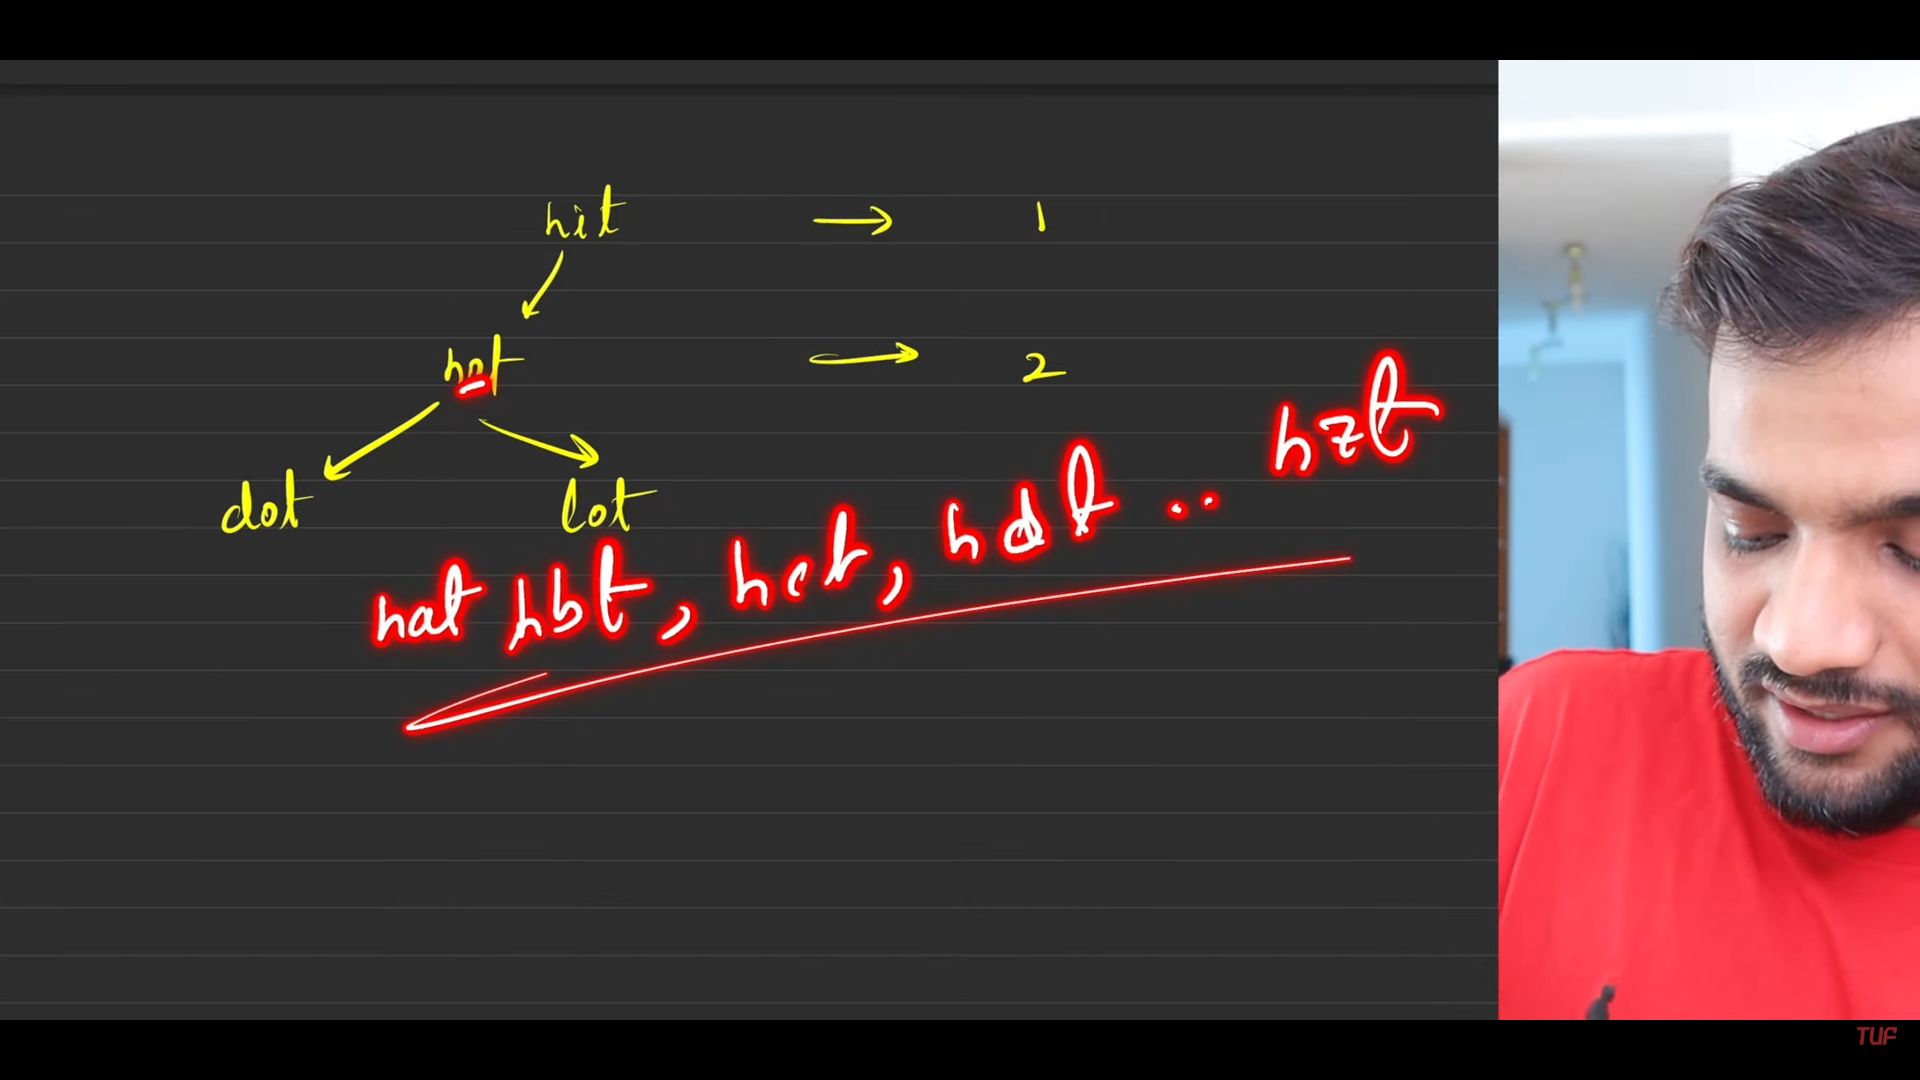 hit → 1
hot → 2
dot lot
hat hbt, hct, hdt .. hzt
TUF